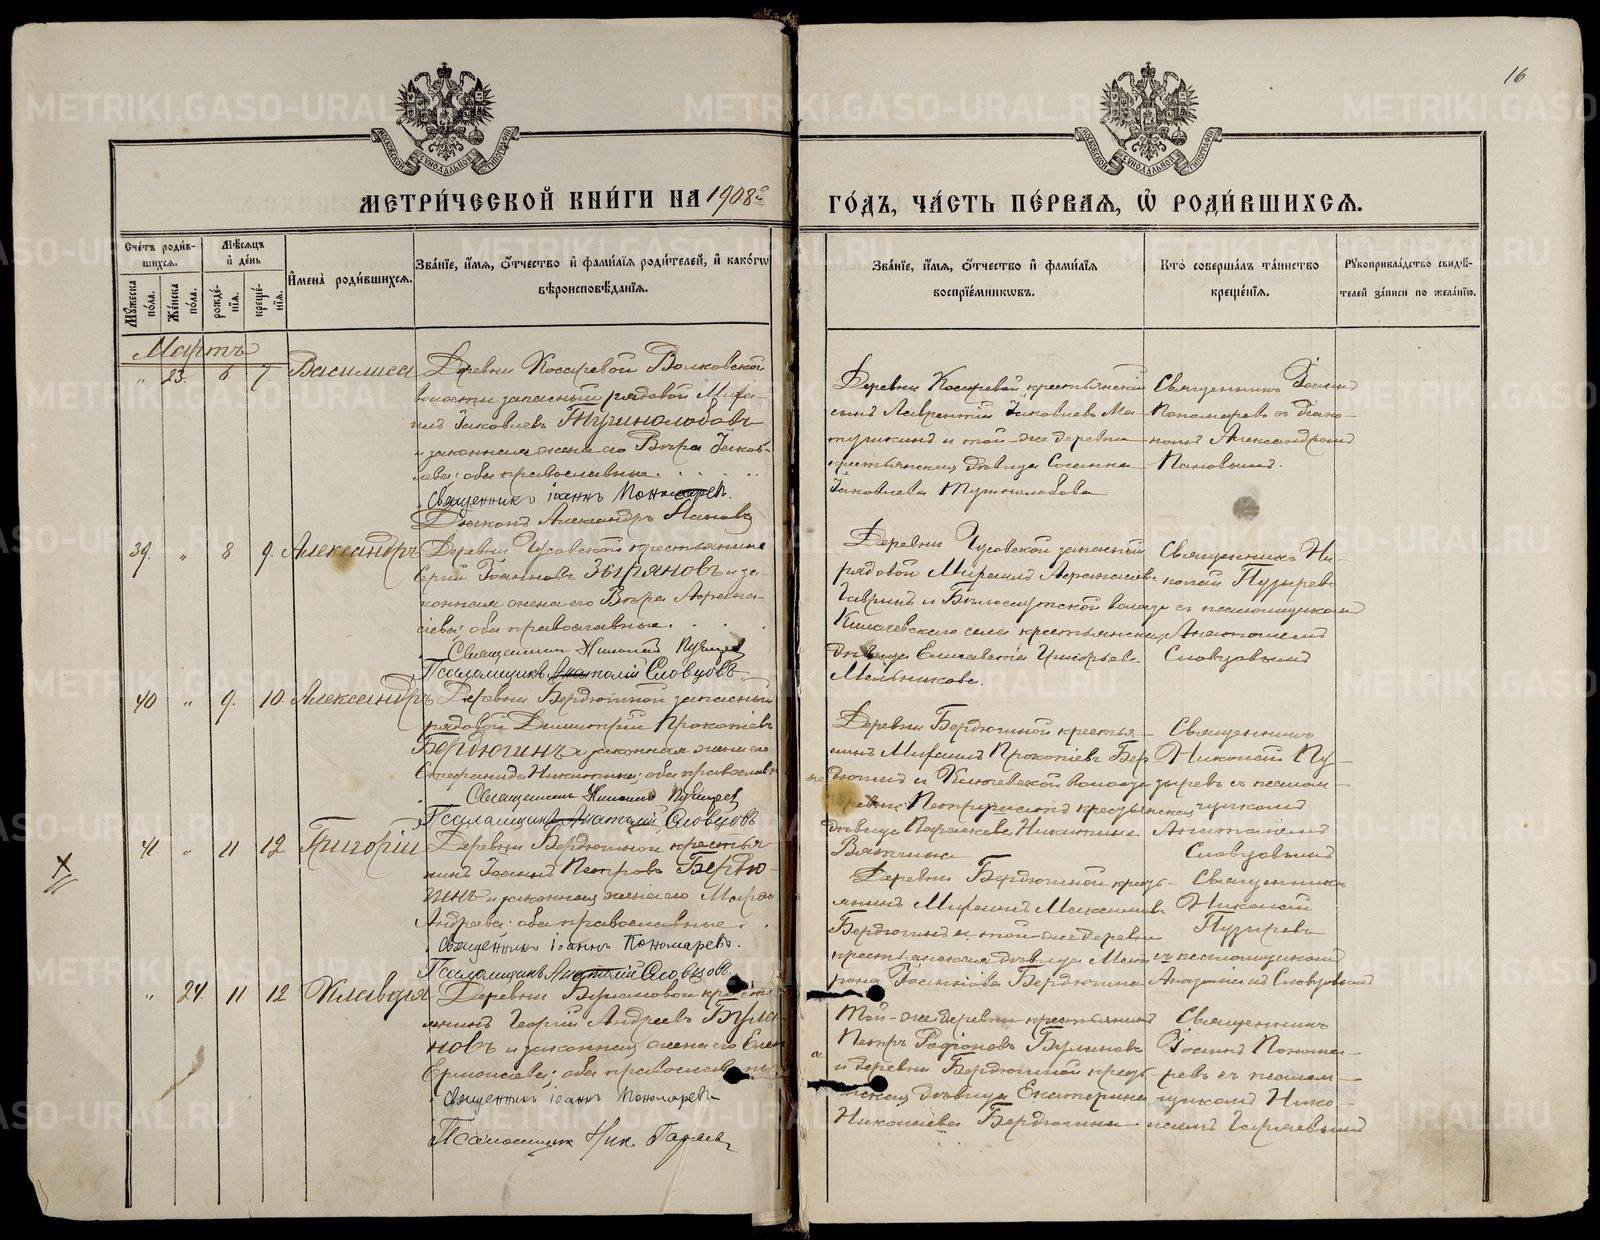 16
МЕТРИ́ЧЕСКОЙ КНИ́ГИ НА 1908й
ГО́ДЪ, ЧА́СТЬ ПЕ́РВАѦ, Ѿ РОДИ́ВШИХСѦ.
Сче́тъ роди́в-
шихсѧ.
Мѣ́сѧцъ
и́ де́нь
Му́жеска
по́ла.
Же́нска
по́ла.
рожде́-
нїѧ.
креще́-
нїѧ.
И҆мена̀ роди́вшихсѧ.
Зва́нїе, и҆́мѧ, ѻ҆́тчество и҆ фами́лїѧ роди́телей, и҆ како́гѡ
вѣроисповѣ́данїѧ.
Зва́нїе, и҆́мѧ, ѻ҆́тчество и҆ фами́лїѧ
воспрїе́мникѡвъ.
Кто̀ соверша́лъ та́инство
креще́нїѧ.
Рꙋкоприкла́дство свидѣ́-
телей за́писи по жела́нїю.
Мартъ
" 23. 6 7. Василиса
Деревни Косаревой Волковской
волости запасный рядовой Миха-
илъ Іаковлевъ Тушнолобовъ
и законная жена его Вѣра Іаков-
лева; оба православные.
Священникъ Іоаннъ Пономаревъ.
Діаконъ Александръ Пановъ
Деревни Косаревой крестьянскій
сынъ Лаврентій Іаковлевъ Ма-
тушкинъ и той-же деревни
крестьянская дѣвица
Іаковлева Тушнолобова
Священникъ Іоаннъ
Пономаревъ съ діако-
номъ Александромъ
Пановымъ.
39. " 8 9. Александръ
Деревни Чусовской крестьянинъ
Сергій Іоанновъ Зыряновъ и за-
конная жена его Вѣра Афана-
сіева; оба православные.
Священникъ Николай Пузырев
Псаломщикъ Анатолій Словцовъ
Деревни Чусовской запасный
рядовой Михаилъ Афанасіевъ
Гавринъ и Бѣлоусовской волости
села крестьянская
дѣвица Елисавета Григорьева
Мельникова.
Священникъ Ни-
колай Пузыревъ
съ псаломщикомъ
Анатоліемъ
Словцовымъ
40 " 9. 10 Александръ
Деревни Бердюгиной запасный
рядовой Димитрій Прокопіевъ
Бердюгинъ и законная жена его
Стефанида Никитина; оба православн
Священникъ Николай Пузырев
Псаломщикъ Анатолій Словцовъ
Деревни Бердюгиной крестья-
нинъ Михаилъ Прокопіевъ Бер
дюгинъ и Ключевской волости
дѣвица Параскева Никитина
Вяткина
Священникъ
Николай Пу-
зыревъ съ псалом-
щикомъ
Анатоліемъ
Словцовымъ
41 " 11 12 Григорій
Деревни Бердюгиной крестья-
нинъ Іоаннъ Петровъ Бердю-
гинъ и законная жена его Марѳа
Андреева; оба православные.
Священникъ Іоаннъ Пономаревъ.
Псаломщикъ Анатолій Словцовъ.
Деревни Бердюгиной кресть-
янинъ Михаилъ Максимовъ
Бердюгинъ и той-же деревни
крестьянская дѣвица Мат
рона Іоаннова Бердюгина
Священникъ
Николай
Пузыревъ
съ псаломщикомъ
Анатоліемъ Словцовымъ
" 24. 11 12 Клавдія
Деревни Булановой кресть
янинъ Георгій Андреевъ Була-
новъ и законная жена его Елен
Ермолаева; оба православны
Священникъ Іоаннъ Пономаревъ
Псаломщикъ Ник. Гаряев
Той-же деревни крестьянинъ
Петръ Родіоновъ Булановъ
и деревни Бердюгиной кресть
янская дѣвица Екатерина
Николаева Бердюгина
Священникъ
Іоаннъ Понома-
ревъ съ псалом-
щикомъ Нико-
лаемъ Гаряевымъ
METRIKI.GASO-URAL.RU